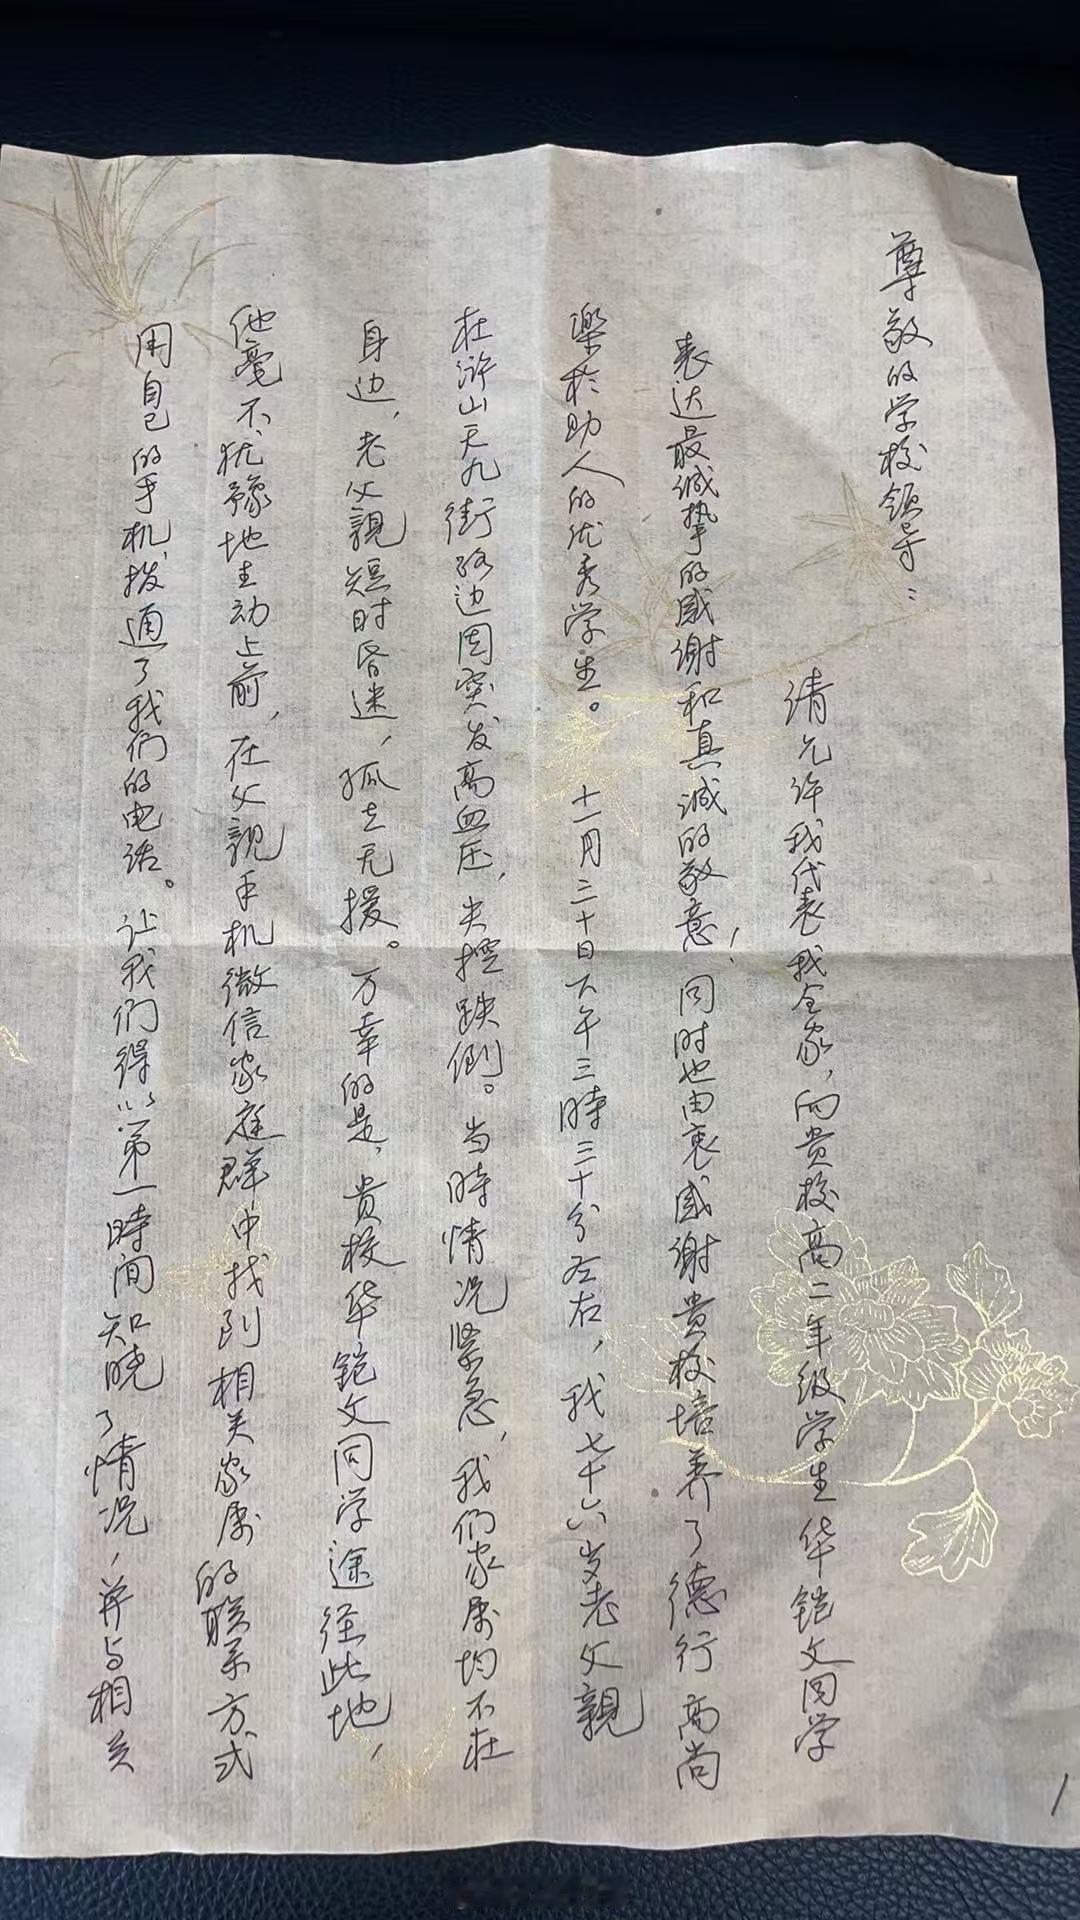 尊敬的学校领导：
请允许我代表我全家，向贵校高二年级学生华铠文同学
表达最诚挚的感谢和真诚的敬意！同时也由衷感谢贵校培养了德行高尚
樂於助人的优秀学生。十一月二十日下午三時三十分左右，我七十六岁老父親
在浒山天九街路边因突发高血压，失控跌倒。当時情况紧急，我们家属均不在
身边，老父親短时昏迷，孤立无援。万幸的是，贵校华铠文同学途径此地，
他毫不犹豫地主动上前，在父親手机微信家庭群中找到相关家属的联系方式
用自己的手机拨通了我们的电话。让我们得以第一時间知晓了情况，并与相关
1